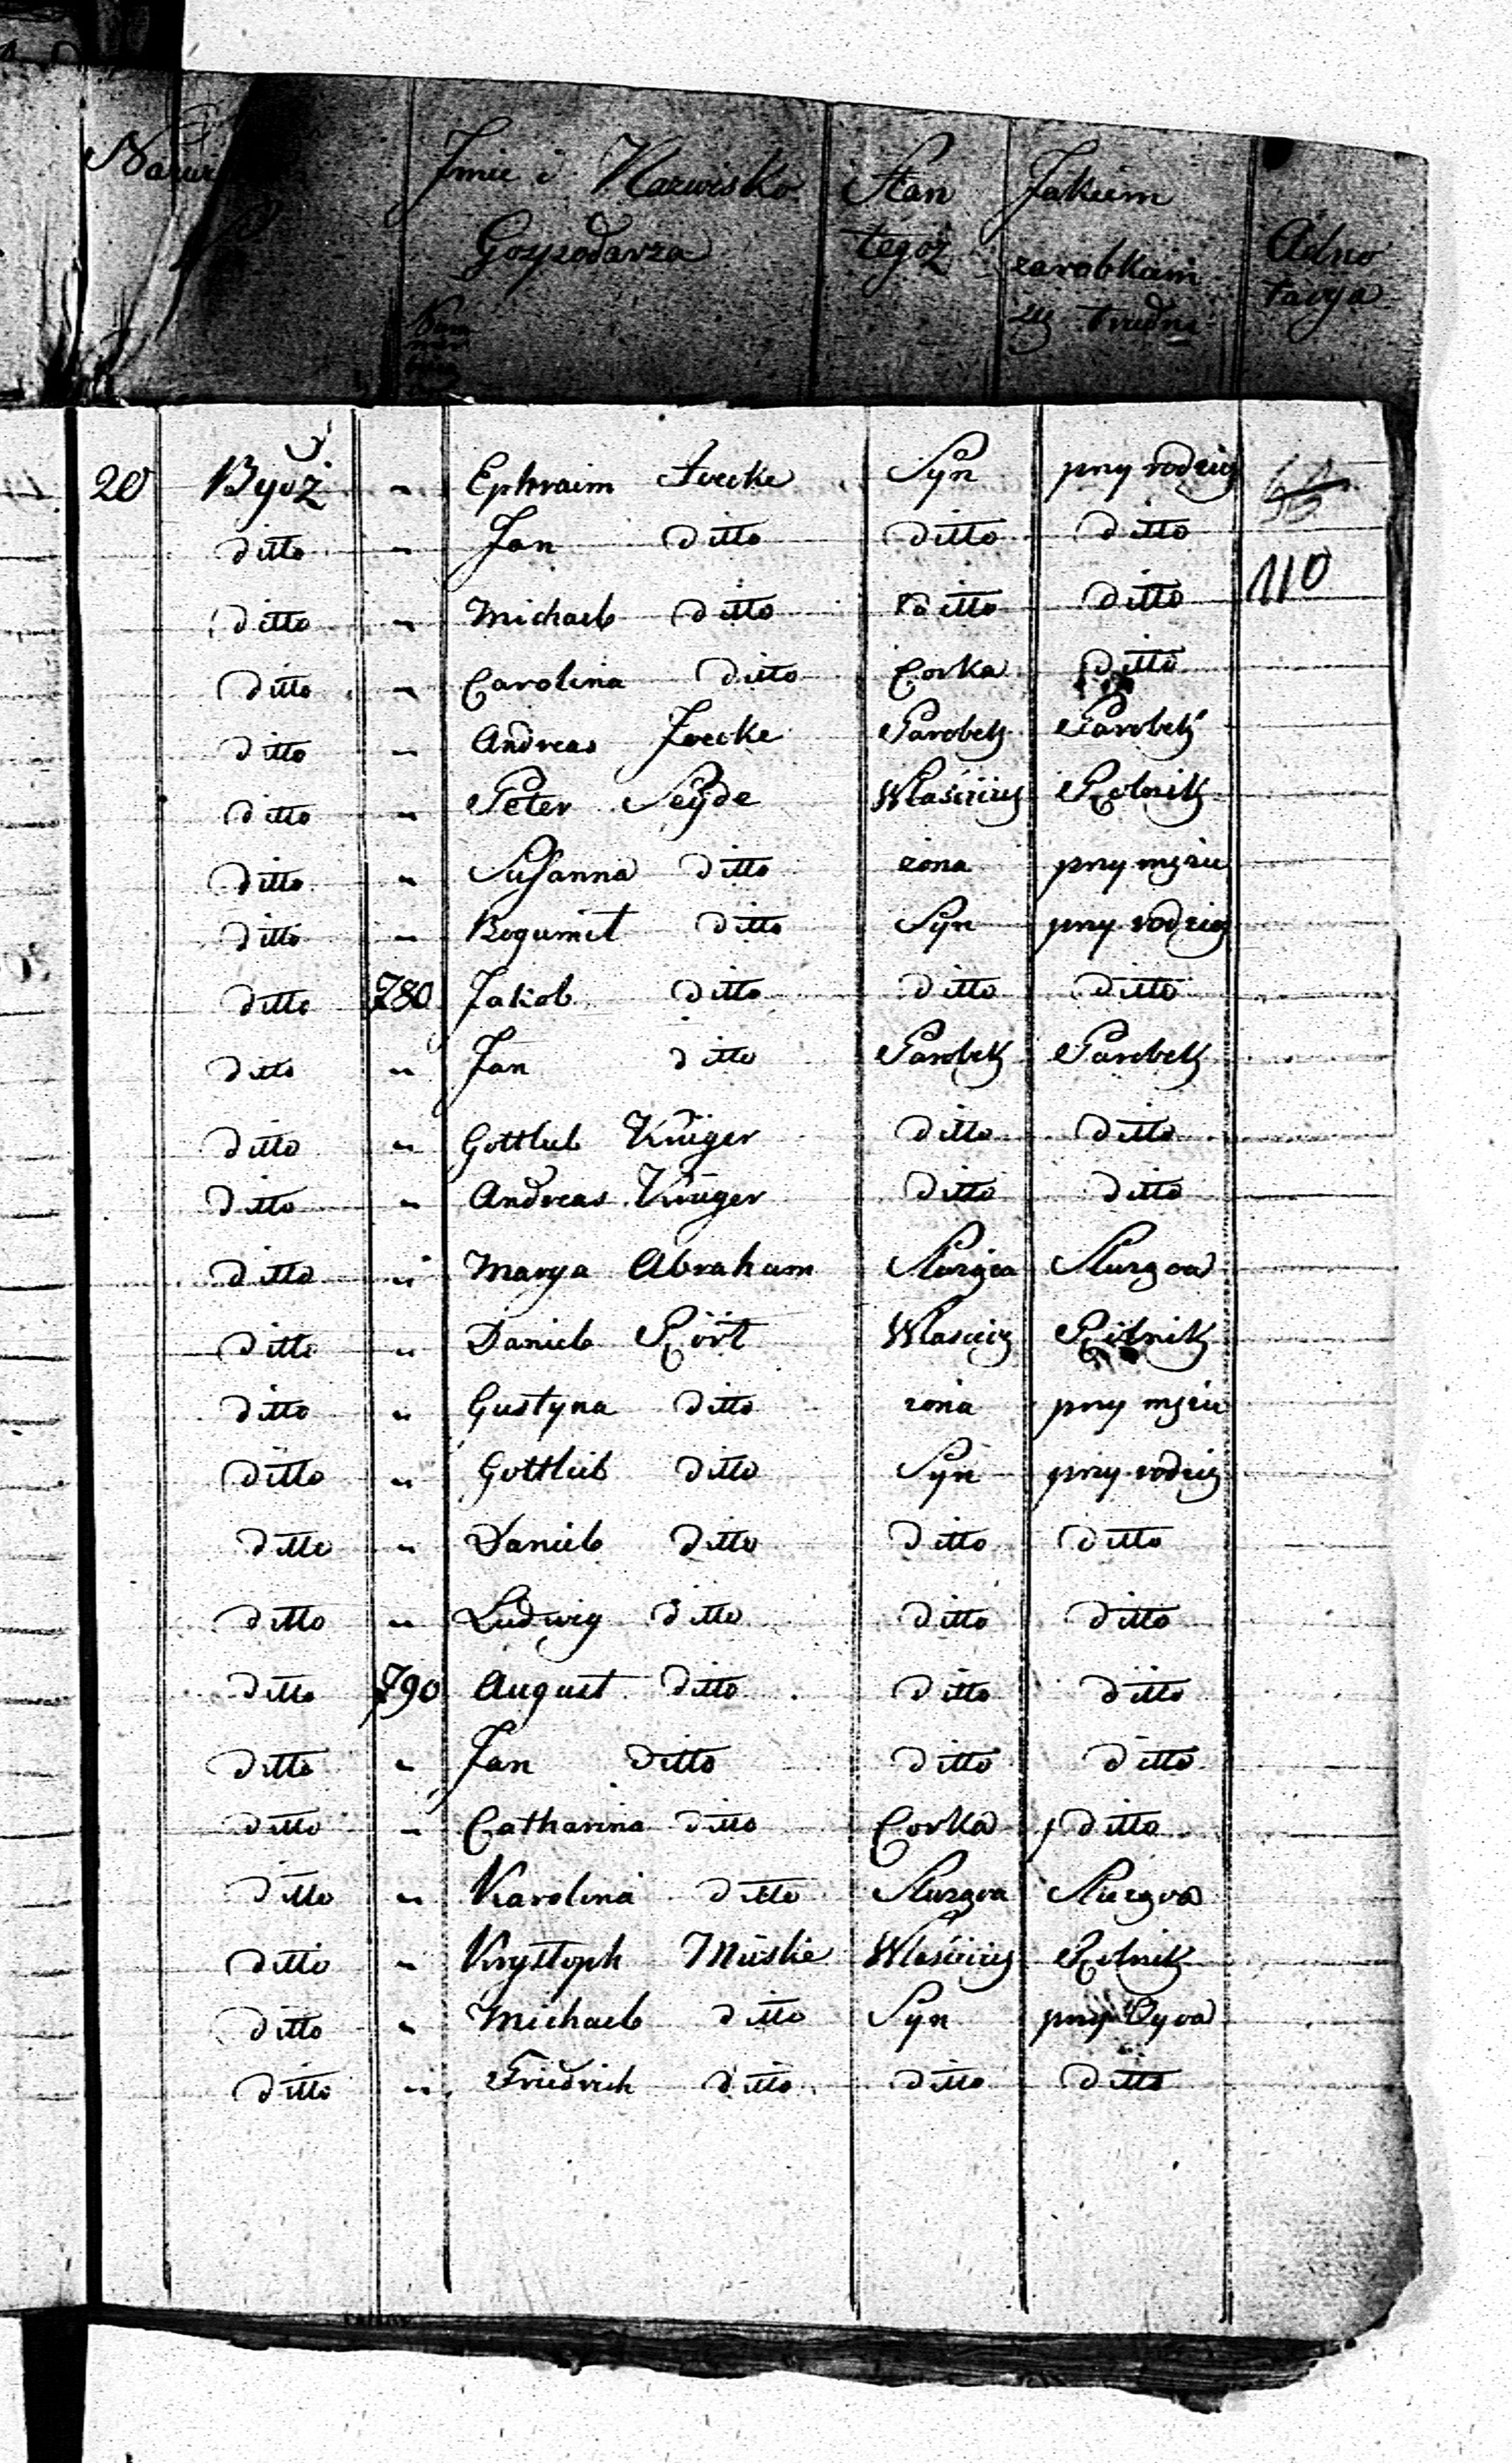 Imie i Nazwisko Gospodarza Stan tegoż Jakiem zarobkiem się trudni Adnotacya
20 Byvż " Ephraim Joecke Syn przy rodzic
110
ditto " Jan ditto ditto ditto
ditto " Michael ditto ditto ditto
ditto " Carolina ditto Corka ditto
ditto " Andreas Joecke Parobek Parobek
ditto " Peter Seÿde Właściciel Rolnik
ditto " Susanna ditto zona przy mężu
ditto " Bogumił ditto Syn przy rodzic
ditto 780 Jakob ditto ditto ditto
ditto " Jan ditto Parobek Parobek
ditto " Gottlieb Krüger ditto ditto
ditto " Andreas Krüger ditto ditto
ditto " Marya Abraham Służąca Służąca
ditto " Daniel Rört Właścic Rolnik
ditto " Gustyna ditto zona przy mężu
ditto " Gottlieb ditto Syn przy rodzic
ditto " Daniel ditto ditto ditto
ditto " Ludwig ditto ditto ditto
ditto 790 August ditto ditto ditto
ditto " Jan ditto ditto ditto
ditto " Catharina ditto Corka ditto
ditto " Karolina ditto Służąca Służąca
ditto " Krystoph Müske Właściciel Rolnik
ditto " Michael ditto Syn przy Oyca
ditto " Friedrich ditto ditto ditto